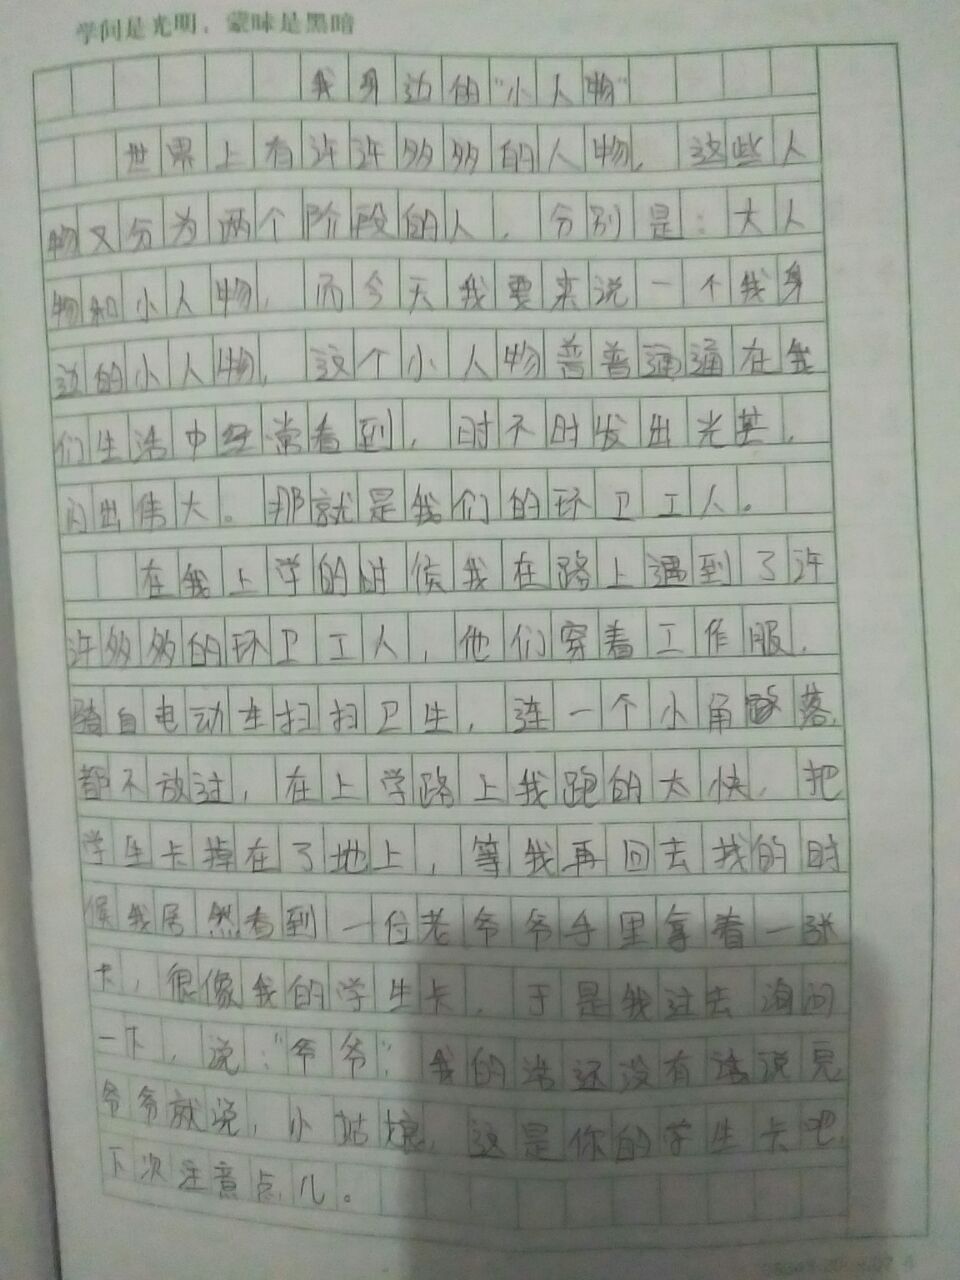 学问是光明，蒙昧是黑暗
我身边的“小人物”
世界上有许许多多的人物，这些人
物又分为两个阶段的人，分别是：大人
物和小人物，而今天我要来说一个我身
边的小人物，这个小人物普普通通在我
们生活中经常看到，时不时发出光芒，
闪出伟大。那就是我们的环卫工人。
在我上学的时候我在路上遇到了许
许多多的环卫工人，他们穿着工作服，
骑自电动车扫扫卫生，连一个小角落
都不放过，在上学路上我跑的太快，把
学生卡掉在了地上，等我再回去找的时
候我居然看到一位老爷爷手里拿着一张
卡，很像我的学生卡，于是我过去询问
一下，说：“爷爷”，我的话还没有说完
爷爷就说，小姑娘，这是你的学生卡吧，
下次注意点儿。